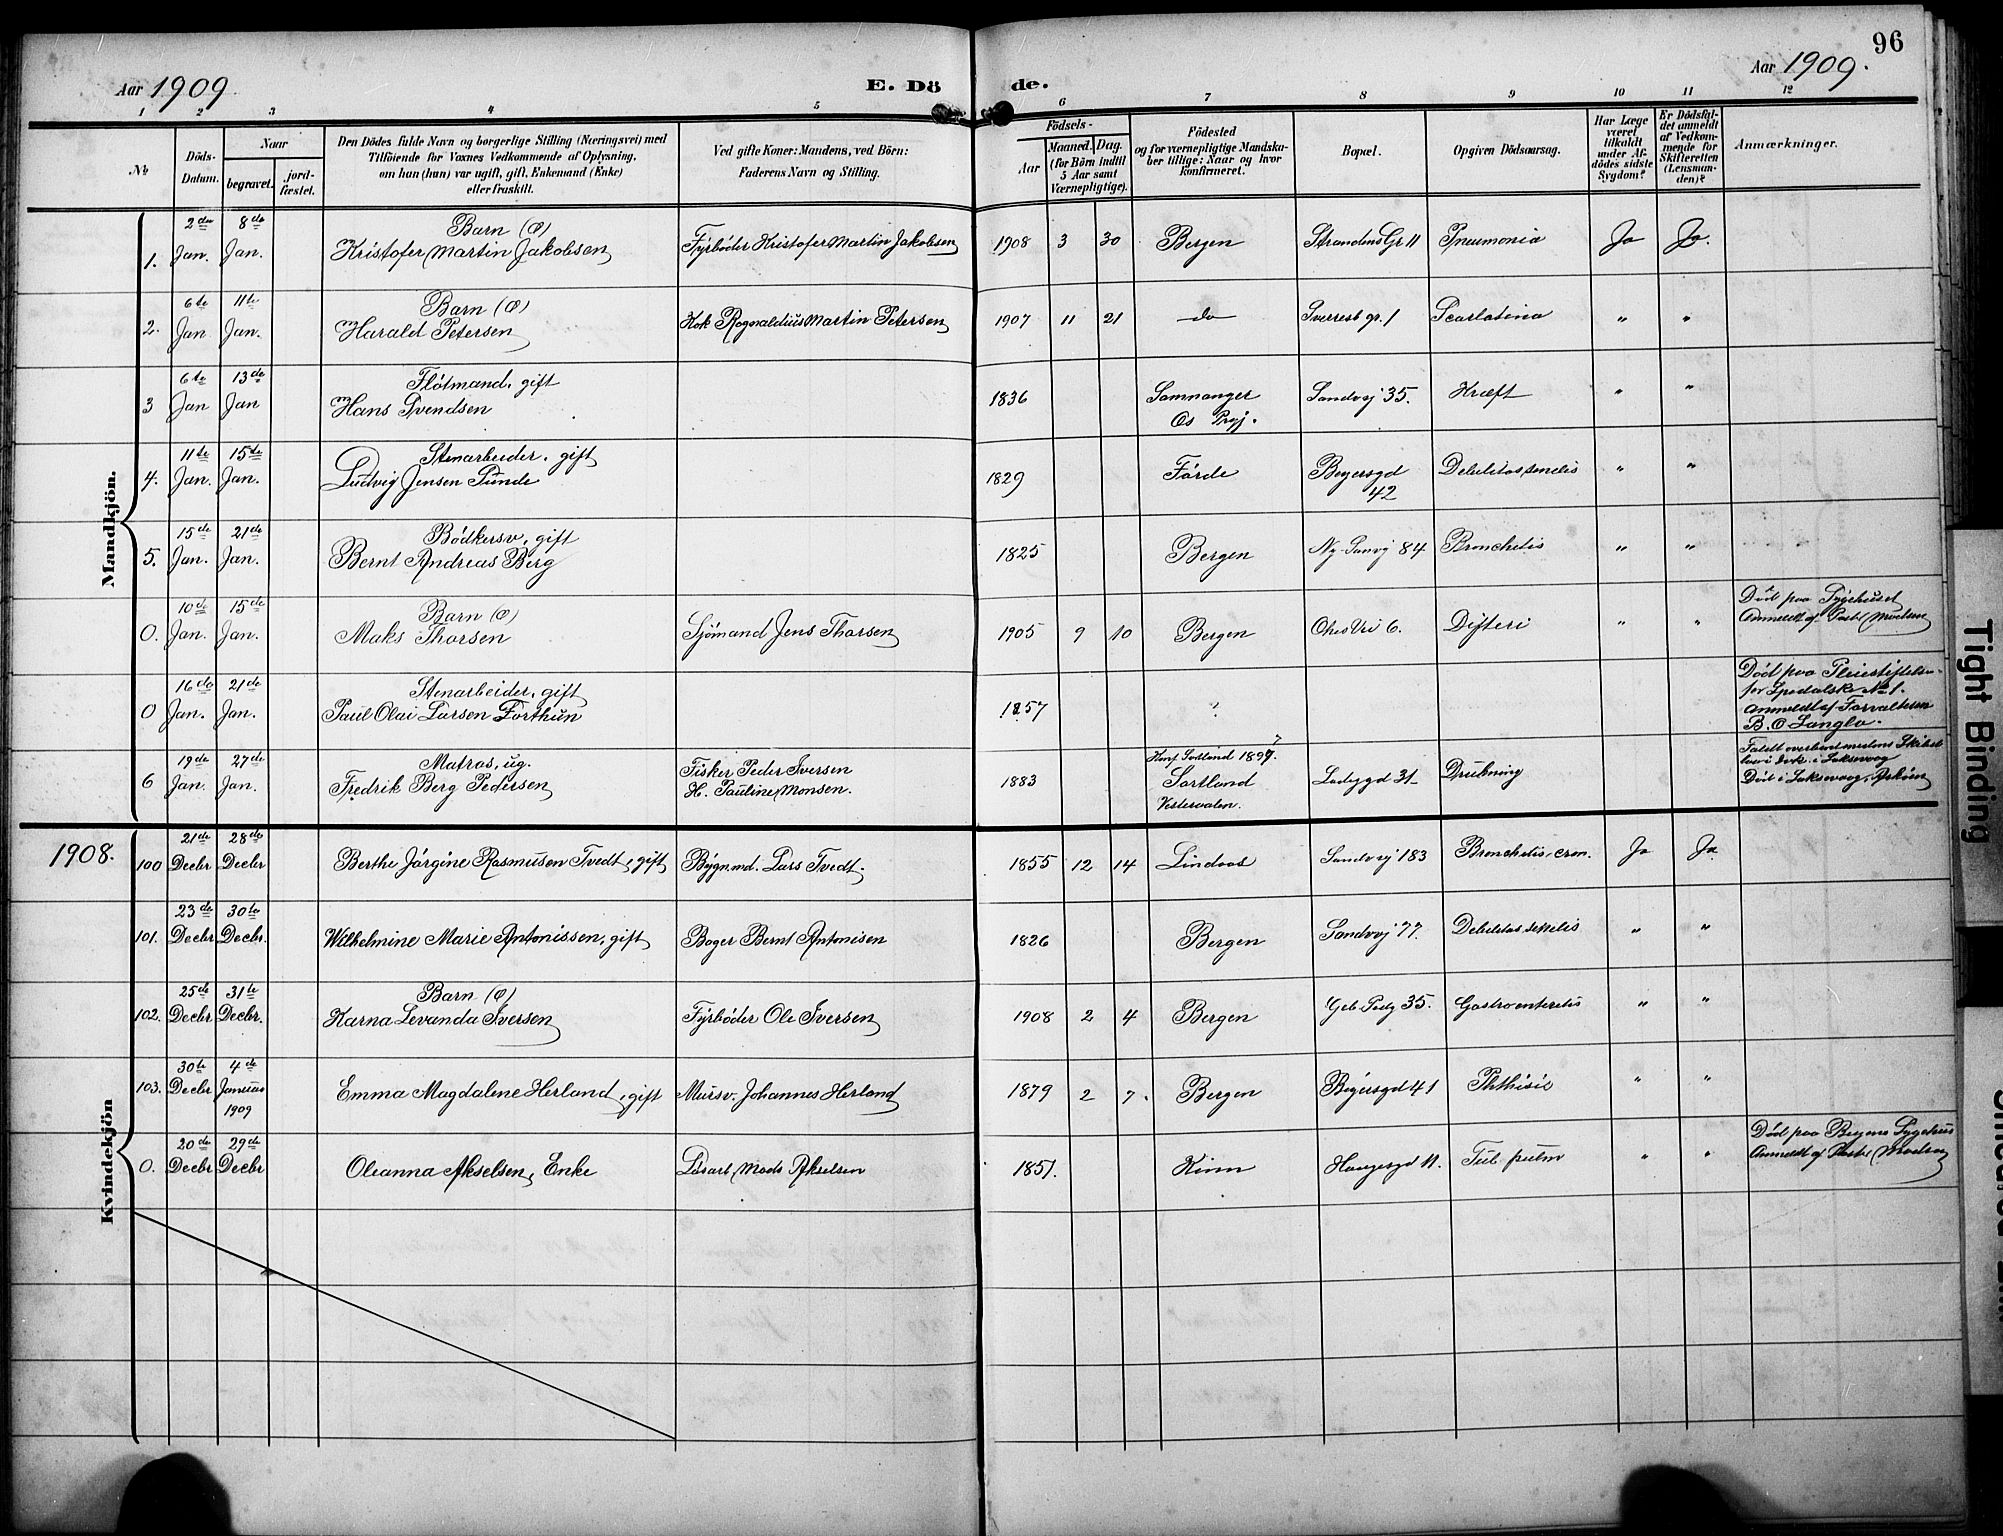 96
Aar 1909. E. Dö
de. Aar 1909.
1 2 3 4 5 6 7 8 9 10 11 12
No
Döds-
Datum.
Naar
begravet. jord-
fæstet.
Den Dödes fulde Navn og borgerlige Stilling (Næringsvei) med
Tilföiende for Voxnes Vedkommende af Oplysning,
om han (hun) var ugift, gift, Enkemand (Enke)
eller fraskilt.
Ved gifte Koner: Mandens, ved Börn:
Faderens Navn og Stilling.
Födsels-
Aar Maaned. Dag.
(for Börn indtil
5 Aar samt
Værnepligtige).
Födested
og for værnepligtige Mandska-
ber tillige: Naar og hvor
konfirmeret.
Bopæl.
Opgiven Dödsaarsag.
Har Læge
været
tilkaldt
under Af-
dödes sidste
Sygdom?
Er Dödsfal-
det anmeldt
af Vedkom-
mende for
Skifteretten
(Lensman-
den)?
Anmærkninger.
Mandkjön.
2de 8de Barn (O)
1. Jan. Jan. Kristofer Martin Jakobsen Fyrböder Kristofer Martin Jakobsen 1908 3 30 Bergen Strandens Gr 11 Pneumonia Ja Ja.
6te 11te Barn (O)
2. Jan Jan. Harald Petersen Kok Rognaldius Martin Petersen 1907 11 21 do Sverresb gr. 1 Scarlatina " "
6te 13de Flötmand, gift
3 Jan Jan Hans Svendsen 1836 Samnanger Sandvj 35. Kræft " "
Os Prgj.
11te 15de Stenarbeider, gift
4. Jan. Jan. Ludvig Jensen Sunde 1829 Förde Beyersgd Debilitas senilis " "
42
15de 21de Bödkersv, gift
5. Jan. Jan. Bernt Andreas Berg 1825 Bergen Ny-Sanvj 84 Bronchitis " "
10de 15de Barn (O) Död paa Sygehuset
0. Jan. Jan. Maks Thorsen Sjömand Jens Thorsen 1905 9 10 Bergen 6. Difteri " " Anmeldt af
16de 21de Stenarbeider, gift Död paa Pleiestiftelsen
for Spedalske No 1.
0 Jan. Jan. Paul Olai Larsen Forthun 1857 ? Anmeldt af Forvalteren
B. O Langlo.
19de 27de Matros, ug. Fisker Peder Iversen Konf Sortland 1897.
6 Jan. Jan. Fredrik Berg Pedersen H. Pauline Monsen. 1883 Sortland Ladegd 31 Drukning
Vesteraalen. Död i Laksevaag, Askøen
1908.
Kvindekjön
21de 28de
100 Decbr Decbr Berthe Jörgine Rasmusen Tvedt, gift Bygn.md. Lars Tvedt. 1855 12 14 Lindaas Sandvj 183 Bronchitis, cron. Ja Ja
23de 30te
101. Decbr Decbr. Wilhelmine Marie Antonissen, gift Bager Bernt Antonisen 1826 Bergen Sandvj 77. Debilitas senilis " "
25de 31te Barn (O)
102. Decbr Decbr. Karna Levanda Iversen Fyrböder Ole Iversen 1908 2 4 Bergen 35. Gastroenteritis " "
30te 4de
103. Decbr Januar Emma Magdalene Herland, gift Mursv. Johannes Herland 1879 2 7. Bergen Beyersgd 41 Phthisis " "
1909
20de 29de Död paa Bergens Sygehus
0. Decbr Decbr Oleanna Akselsen, Enke Lasarl, Mads Akselsen 1851. Kinn Haugesgd 11. Tub. pulm " " Anmeldt af
Tight Binding